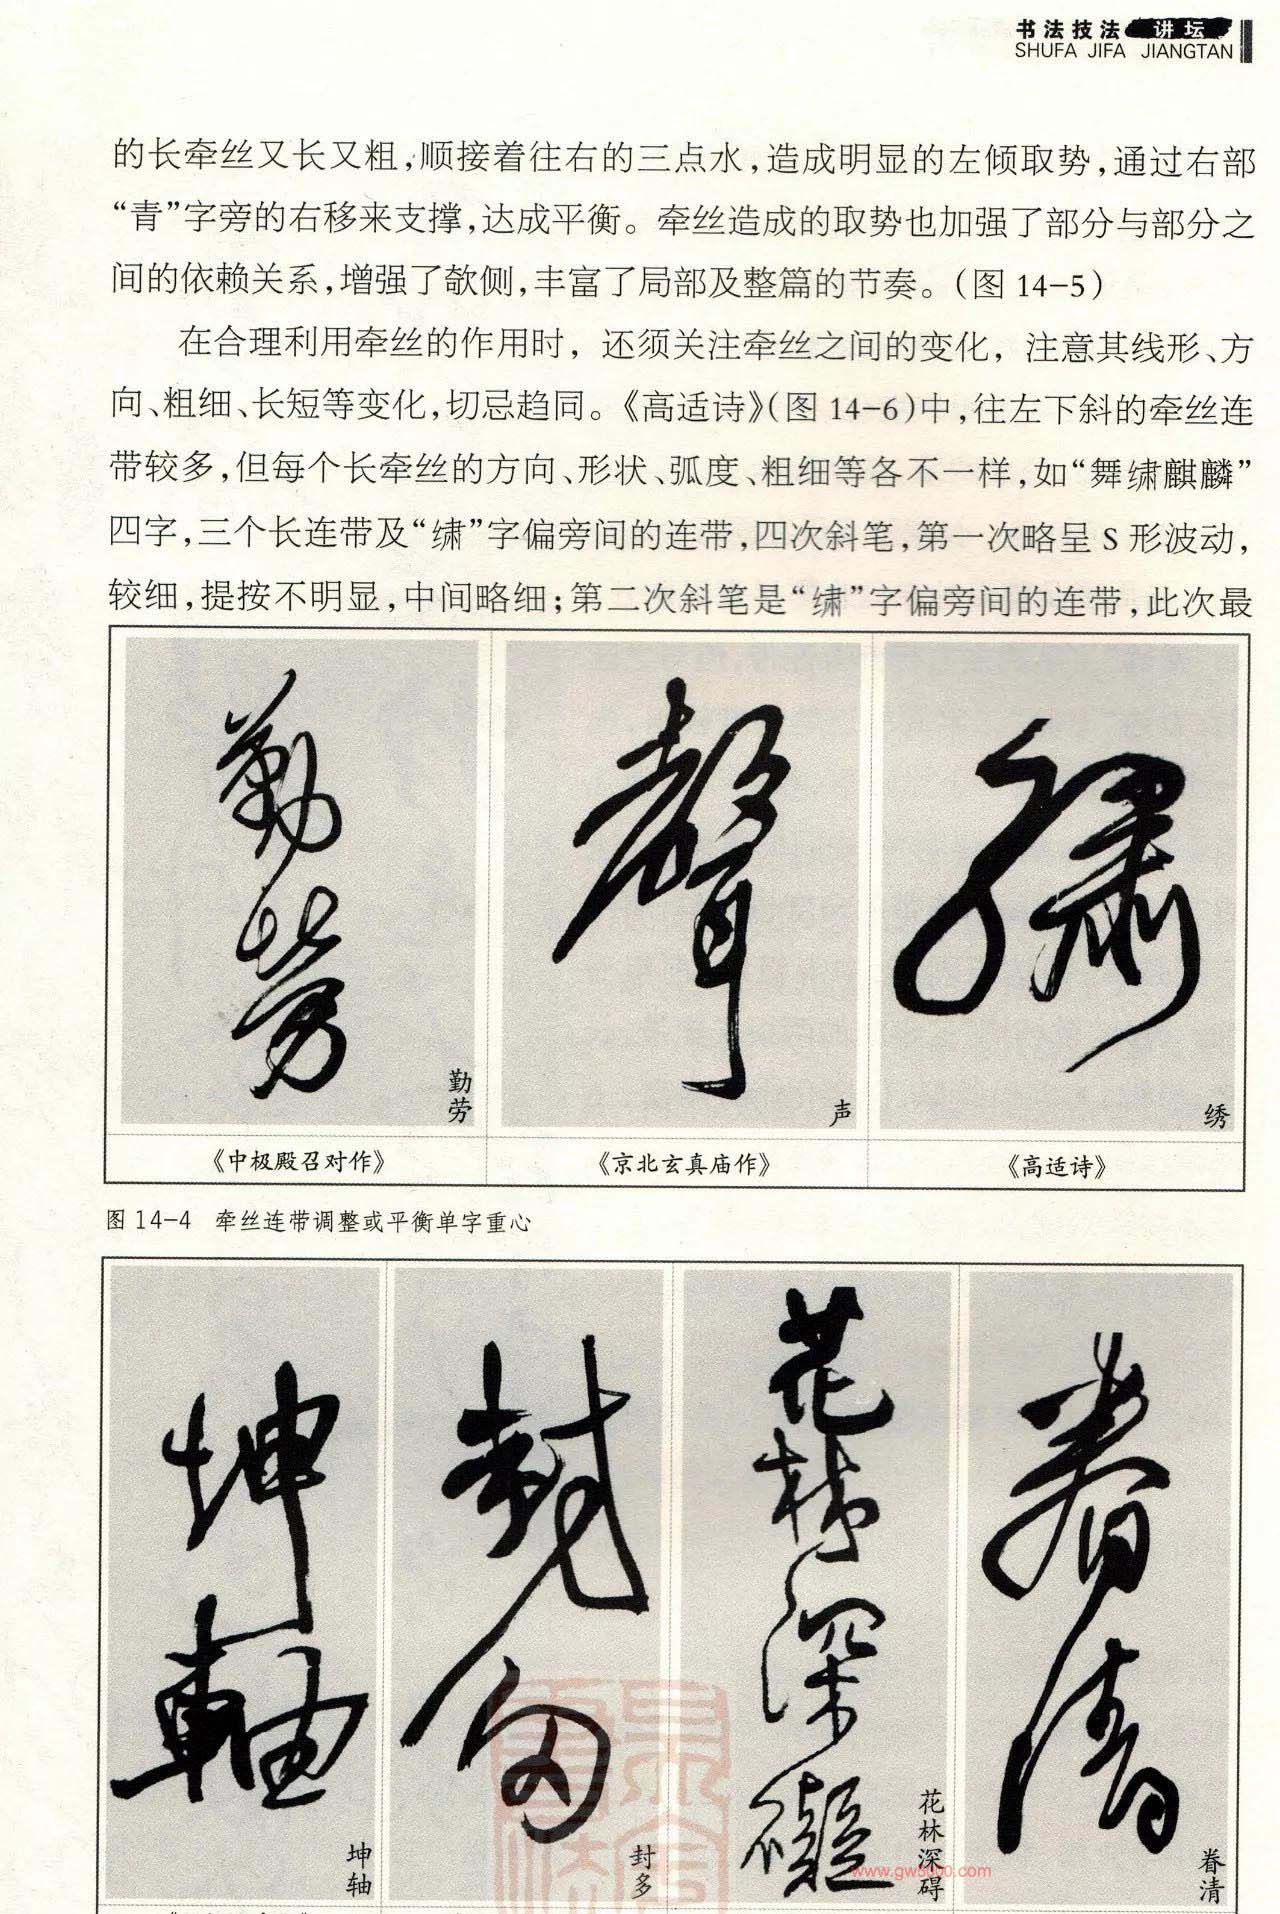 书法技法 讲坛
SHUFA JIFA JIANGTAN
的长牵丝又长又粗,顺接着往右的三点水,造成明显的左倾取势,通过右部
“青”字旁的右移来支撑,达成平衡。牵丝造成的取势也加强了部分与部分之
间的依赖关系,增强了欹侧,丰富了局部及整篇的节奏。(图 14-5)
在合理利用牵丝的作用时，还须关注牵丝之间的变化，注意其线形、方
向、粗细、长短等变化,切忌趋同。《高适诗》(图 14-6)中,往左下斜的牵丝连
带较多,但每个长牵丝的方向、形状、弧度、粗细等各不一样,如“舞绣麒麟”
四字,三个长连带及“绣”字偏旁间的连带,四次斜笔,第一次略呈 S 形波动,
较细,提按不明显,中间略细;第二次斜笔是“绣”字偏旁间的连带,此次最
勤劳
聲
繡
勤劳
声
绣
《中极殿召对作》
《京北玄真庙作》
《高适诗》
图 14-4 牵丝连带调整或平衡单字重心
坤軸
封多
花林深礙
眷清
坤轴
封多
花林深碍
眷清
www.gw5000.com